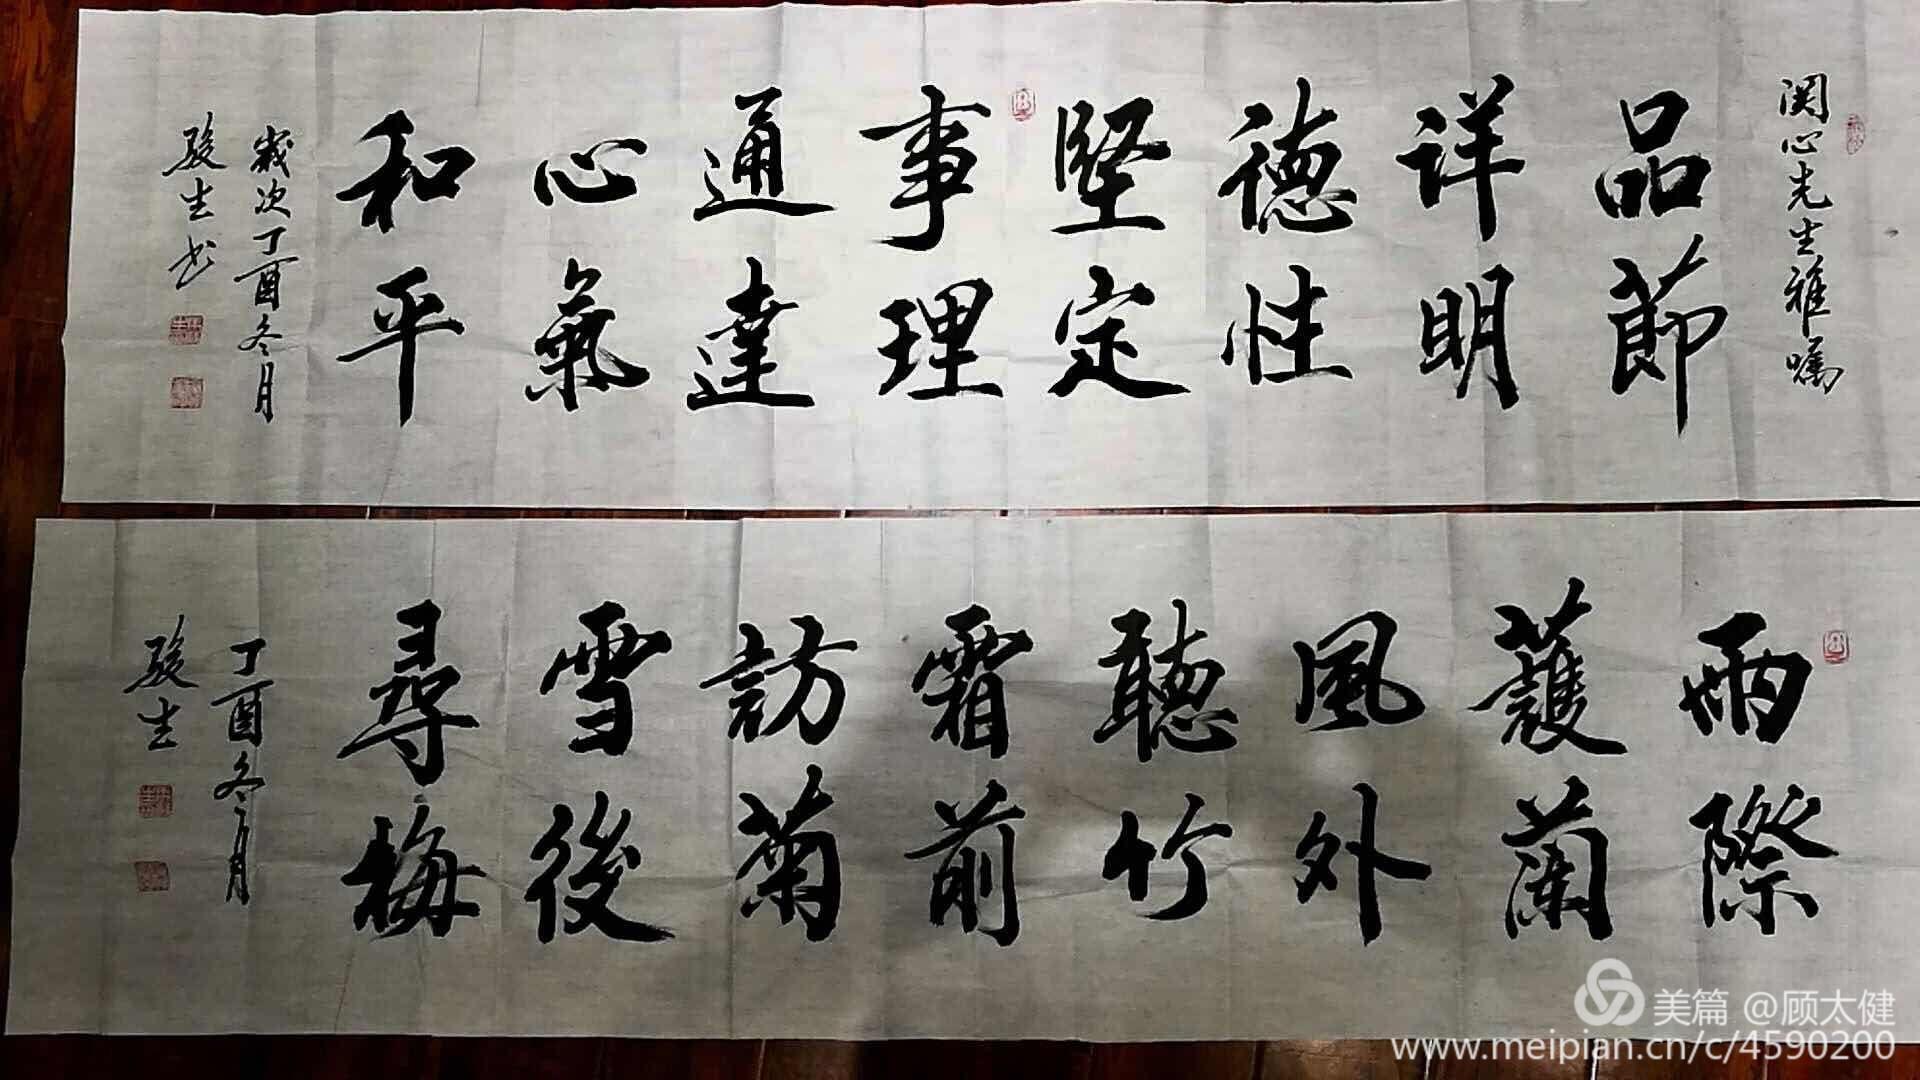 関心先生雅嘱
品節
详明
德性
堅定
事理
通達
心氣
和平
歲次丁酉冬月
駿生书
雨際
護蘭
風外
聽竹
霜前
訪菊
雪後
尋梅
丁酉冬月
駿生
美篇 @顾太健
www.meipian.cn/c/4590200